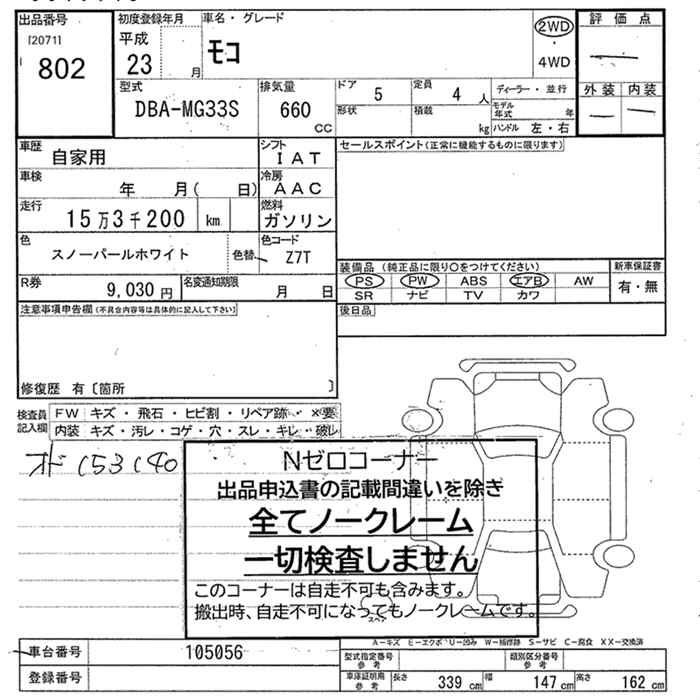 出品番号 初度登録年月 車名・グレード 評価点
[2071] 平成
802 23 月 モコ 2WD
・
4WD
外装 内装
型式 排気量 ドア 5 定員 4 人 ディーラー・並行
DBA-MG33S 660 cc 形状 積載 kg モデル年式 年
ハンドル 左・右
車歴 自家用 シフト IAT セールスポイント(正常に機能するものに限ります)
車検 年 月( 日) 冷房 AAC
走行 15万3千200 km 燃料 ガソリン
色 スノーパールホワイト 色替 色コード Z7T
装備品 (純正品に限り○をつけてください) 新車保証書
PS PW ABS エアB AW 有・無
SR ナビ TV カワ
R券 9,030円 名変通知期限 月 日
注意事項申告欄(不具合内容等は具体的に記入して下さい) 後日品
修復歴 有〔箇所 〕
検査員記入欄 FW キズ・飛石・ヒビ割・リペア跡・×要
内装 キズ・汚レ・コゲ・穴・スレ・キレ・破レ
Nゼロコーナー
出品申込書の記載間違いを除き
全てノークレーム
一切検査しません
このコーナーは自走不可も含みます。
搬出時、自走不可になってもノークレームです。
スペア
A-キズ E-エクボ U-凹み W-補修跡 S-サビ C-腐食 XX-交換済
車台番号 105056 型式指定番号 参考 類別区分番号 参考
登録番号 車庫証明用 参考 長さ 339 cm 幅 147 cm 高さ 162 cm